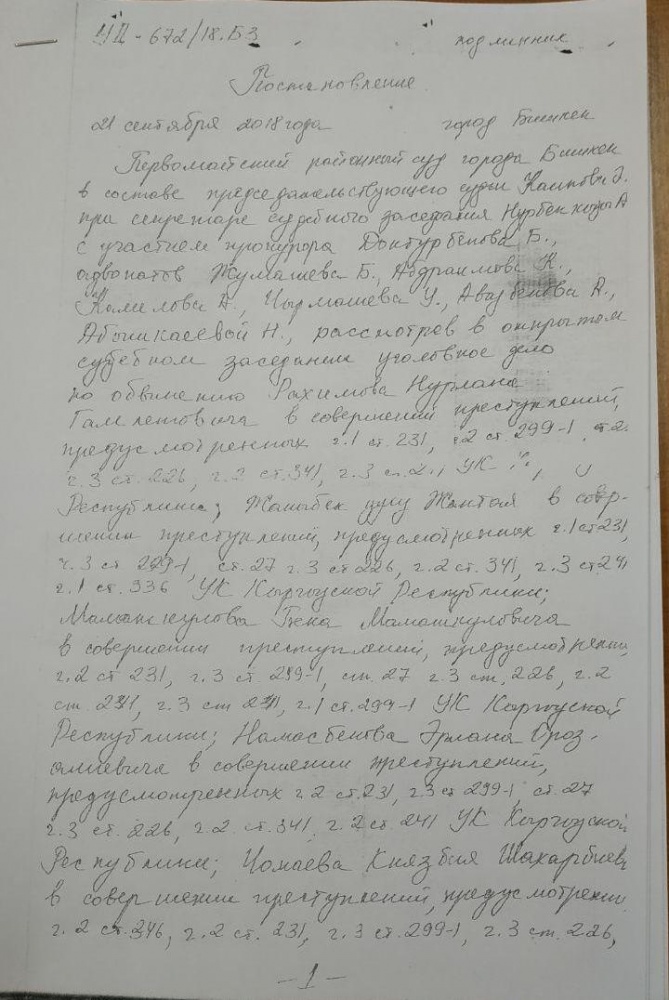 УД-672/18.Б3 подлинник
Постановление
21 сентября 2018 года город Бишкек
Первомайский районный суд города Бишкек
в составе председательствующего судьи Каипова Э.
при секретаре судебного заседания
с участием прокурора Доктурбекова Б.,
адвокатов Жумашева Б., Абдраимова К.,
Камилова А., Чырмашева У., Авазбекова А.,
Абышкаевой Н., рассмотрев в открытом
судебном заседании уголовное дело
по обвинению Рахимова Нурлана
Гамлетовича в совершении преступлений,
предусмотренных ч.1 ст. 231, ч.2 ст. 299-1,
ч.3 ст. 226, ч.2 ст. 341, ч.3 УК
Республики; Жаныбек уулу Жантая в совер-
шении преступлений, предусмотренных ч.1 ст 231,
ч.3 ст 299-1, ст. 27 ч.3 ст 226, ч.2 ст. 341, ч.3 ст 241
ч.1 ст. 336 УК Кыргызской Республики;
Маматкулова Бека Маматкуловича
в совершении преступлений,
ч.2 ст 231, ч.3 ст. 299-1, ст. 27 ч.3 ст. 226, ч.2
ст. 341, ч.3 ст 241, ч.1 ст. 299-1 УК Кыргызской
Республики; Намасбекова Эрлана Ороз-
алиевича в совершении преступлений,
предусмотренных ч.2 ст. 231, ч.3 ст 299-1 ст. 27
ч.3 ст. 226, ч.2 ст. 341, ч.2 ст. 241 УК Кыргызской
Республики; Чомаева Князбия
в совершении преступлений,
ч.2 ст. 346, ч.2 ст. 231, ч.3 ст. 299-1, ч.3 ст. 226,
-1-